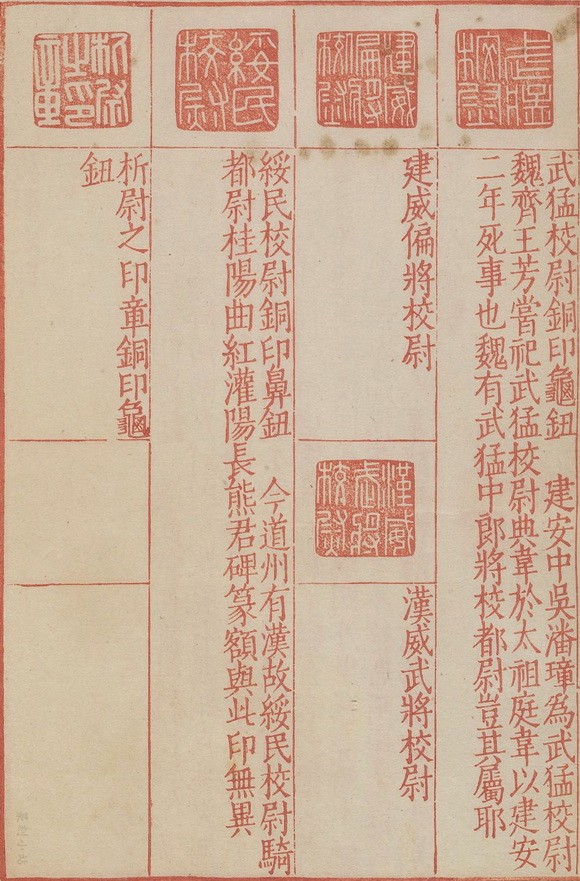 武猛校尉
武猛校尉銅印龜鈕　建安中吳潘璋為武猛校尉
魏齊王芳嘗祀武猛校尉典韋於太祖庭韋以建安
二年死事也魏有武猛中郎將校都尉豈其屬耶
建威偏將校尉
建威偏將校尉
漢威武將校尉
漢威武將校尉
綏民校尉
綏民校尉銅印鼻鈕　今道州有漢故綏民校尉騎
都尉桂陽曲紅灌陽長熊君碑篆額與此印無異
析尉之印章
析尉之印章銅印龜
鈕